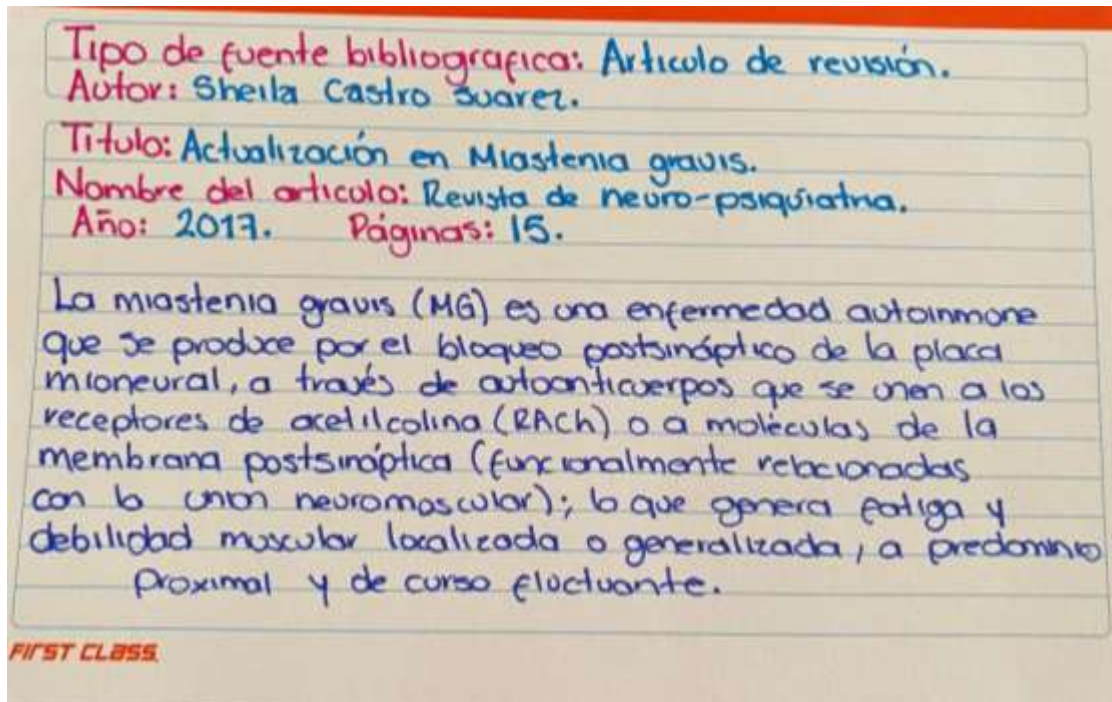 Tipo de fuente bibliografica: Articulo de revisión.
Autor: Sheila Castro Suarez.
Titulo: Actualización en Miastenia gravis.
Nombre del articulo: Revista de neuro-psiquiatria.
Año: 2017. Páginas: 15.
La miastenia gravis (MG) es una enfermedad autoinmune
que se produce por el bloqueo postsináptico de la placa
mioneural, a través de autoanticuerpos que se unen a los
receptores de acetilcolina (RACh) o a moléculas de la
membrana postsináptica (funcionalmente relacionadas
con la unión neuromuscular); lo que genera fatiga y
debilidad muscular localizada o generalizada, a predominio
proximal y de curso fluctuante.
FIRST CLASS